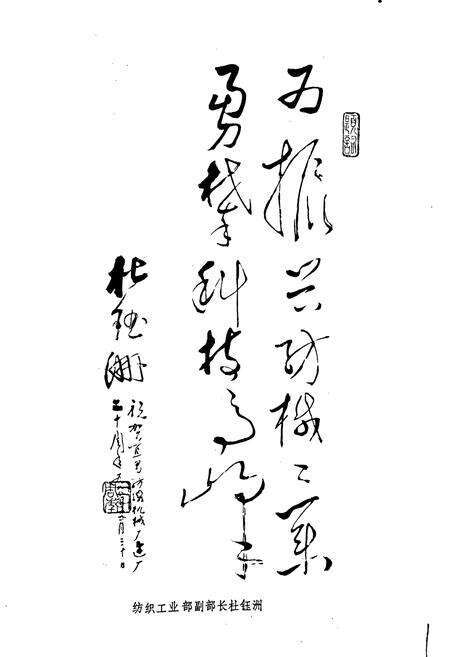 为振兴纺械工业
勇攀科技高峰
杜钰洲
祝贺宜昌纺织机械厂建厂
十周年
纺织工业部副部长杜钰洲